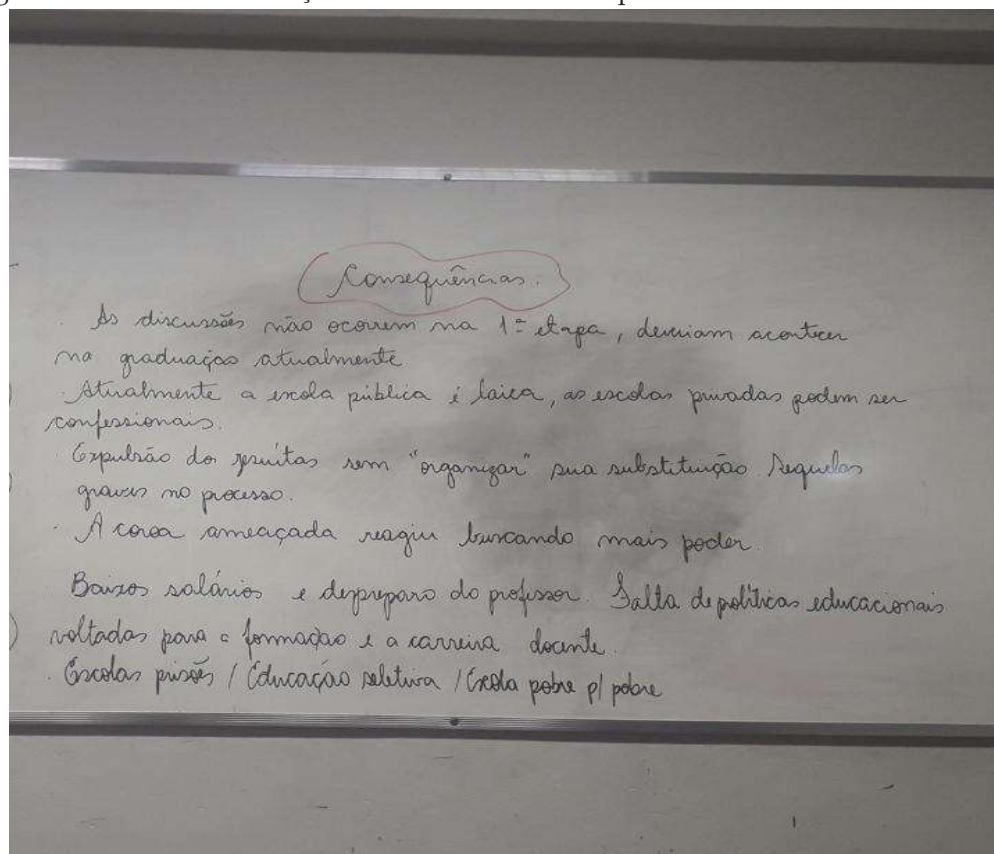 Consequências.
. As discussões não ocorrem na 1ª etapa, deveriam acontecer
na graduação atualmente
. Atualmente a escola pública é laica, as escolas privadas podem ser
confessionais.
. Expulsão dos jesuítas sem "organizar" sua substituição. Sequelas
graves no processo.
. A coroa ameaçada reagiu buscando mais poder.
Baixos salários e despreparo do professor. Falta de políticas educacionais
voltadas para a formação e a carreira docente.
. Escolas prisões / Educação seletiva / Escola pobre p/ pobre